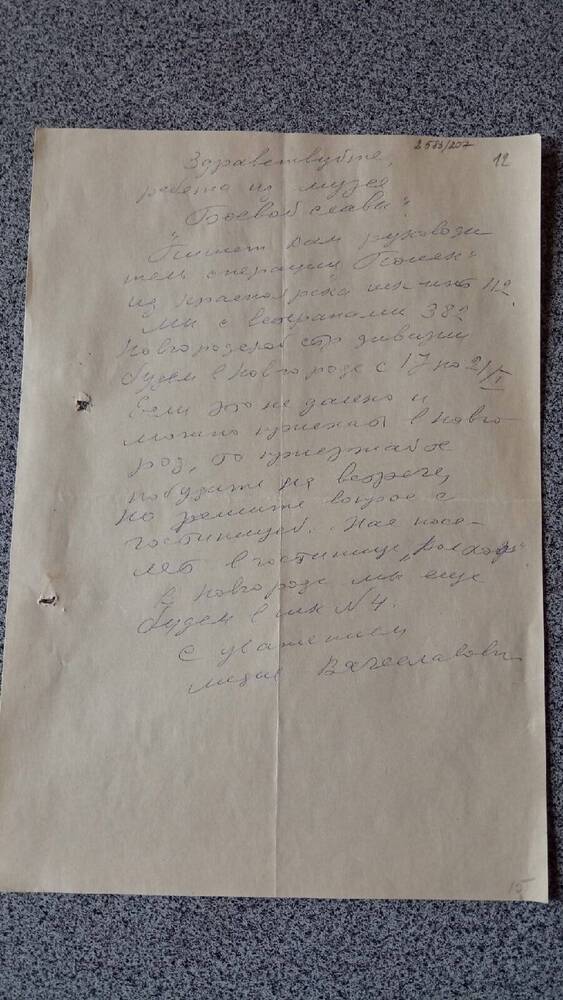 2583/207
12
Здравствуйте,
ребята из музея
"Боевой славы".
Пишет Вам руководи
тель операции "Поиск"
из Красноярска
Мы с ветеранами 382
Новгородской стр дивизии
будем в Новгороде с 17 по 21/I
Если это не далеко и
можно приехать в Новго-
род, то приезжайте
побудете на встрече,
но решите вопрос с
гостиницей. Нас посе-
лят в гостинице
в Новгороде мы еще
будем в шк №4.
С уважением
Лидия Вячеславовн
15